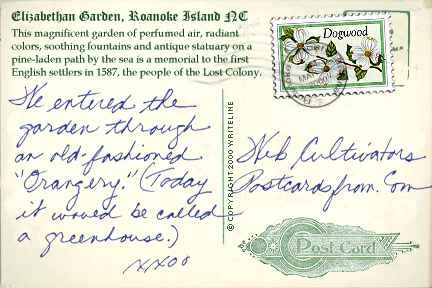 Elizabethan Garden, Roanoke Island NC
This magnificent garden of perfumed air, radiant
colors, soothing fountains and antique statuary on a
pine-laden path by the sea is a memorial to the first
English settlers in 1587, the people of the Lost Colony.
Dogwood
We entered the
garden through
an old-fashioned
"Orangery." (Today
it would be called
a greenhouse.)
xxoo
© COPYRIGHT 2000 WRITELINE
Web Cultivators
Postcardsfrom.Com
Post Card